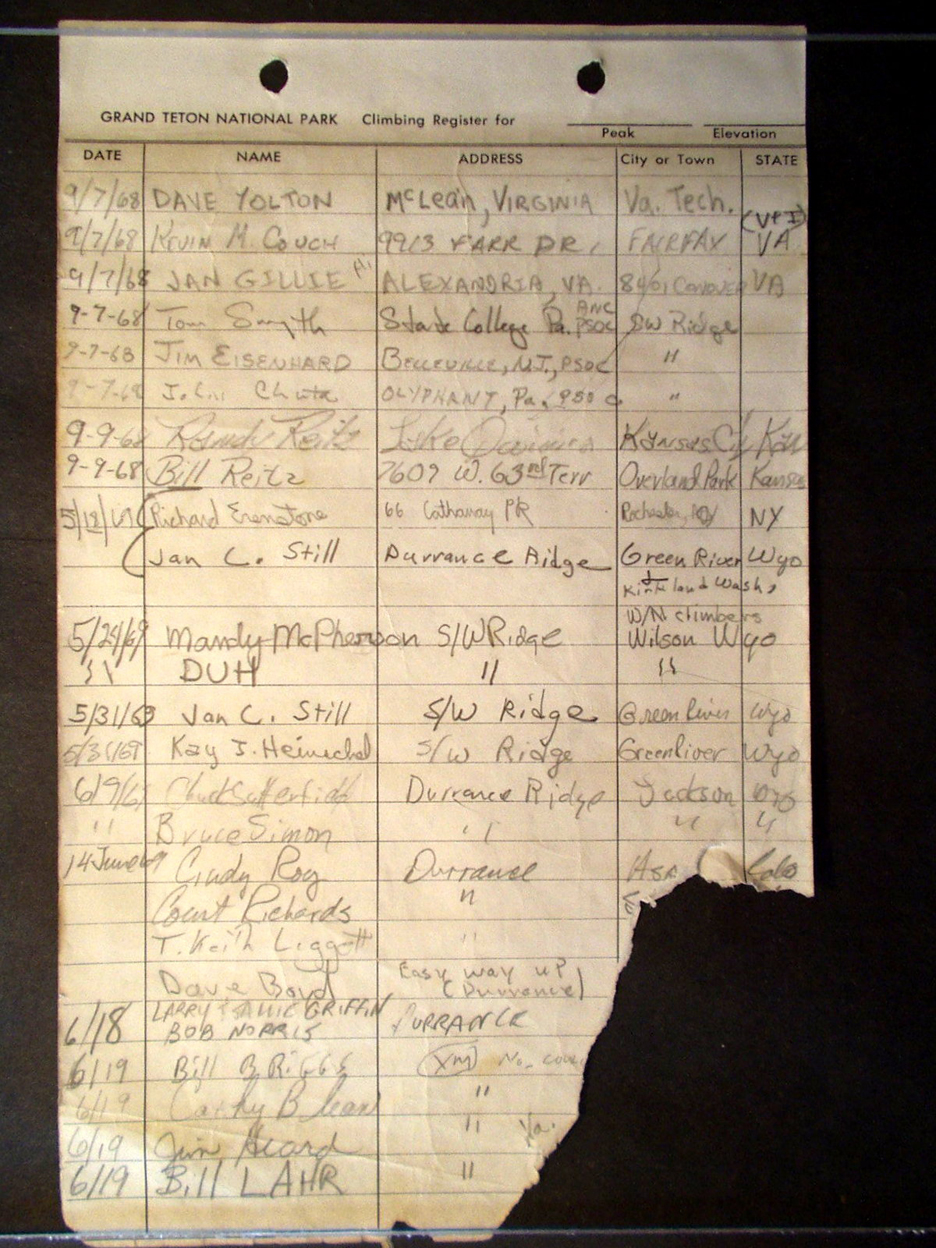 GRAND TETON NATIONAL PARK Climbing Register for
Peak Elevation
DATE NAME ADDRESS City or Town STATE
9/7/68 DAVE YOLTON McLean, VIRGINIA Va. Tech. (VPI)
9/7/68 KEVIN M. COUCH 9913 FARR DR. FAIRFAX VA
9/7/68 JAN GILLIE ALEXANDRIA, VA. 8461 VA
9-7-68 Tom Smyth State College Pa. PSOC SW Ridge
9-7-68 JIM EISENHARD BELLEVILLE, N.J., PSOC "
9-7-68 John OLYPHANT, Pa. PSOC "
9-9-68 Randy Reitz Lake Quivira Kansas City Kan
9-9-68 Bill Reitz 7609 W. 63rd Terr Overland Park Kansas
5/18/69 Richard 66 Cathaway PK Rochester, NY NY
Jan C. Still Durrance Ridge Green River Wyo
Kirkland Wash,
W/N climbers
5/24/69 Mandy McPherson S/W Ridge Wilson Wyo
" DUH " "
5/31/69 Jan C. Still S/W Ridge Green River Wyo
5/31/69 Kay J. S/W Ridge Green River Wyo
6/9/69 Chuck Satterfield Durrance Ridge Jackson Wyo
" Bruce Simon " " "
14 June 69 Cindy Roy Durrance Colo
Court Richards "
T. Keith Liggett "
Dave Boyd Easy way up
(Durrance)
LARRY & GRIFFIN
6/18 BOB NORRIS DURRANCE
6/19 Bill BRIGGS No.
6/19 Cathy "
6/19 Jim Heard "
6/19 Bill LAHR "